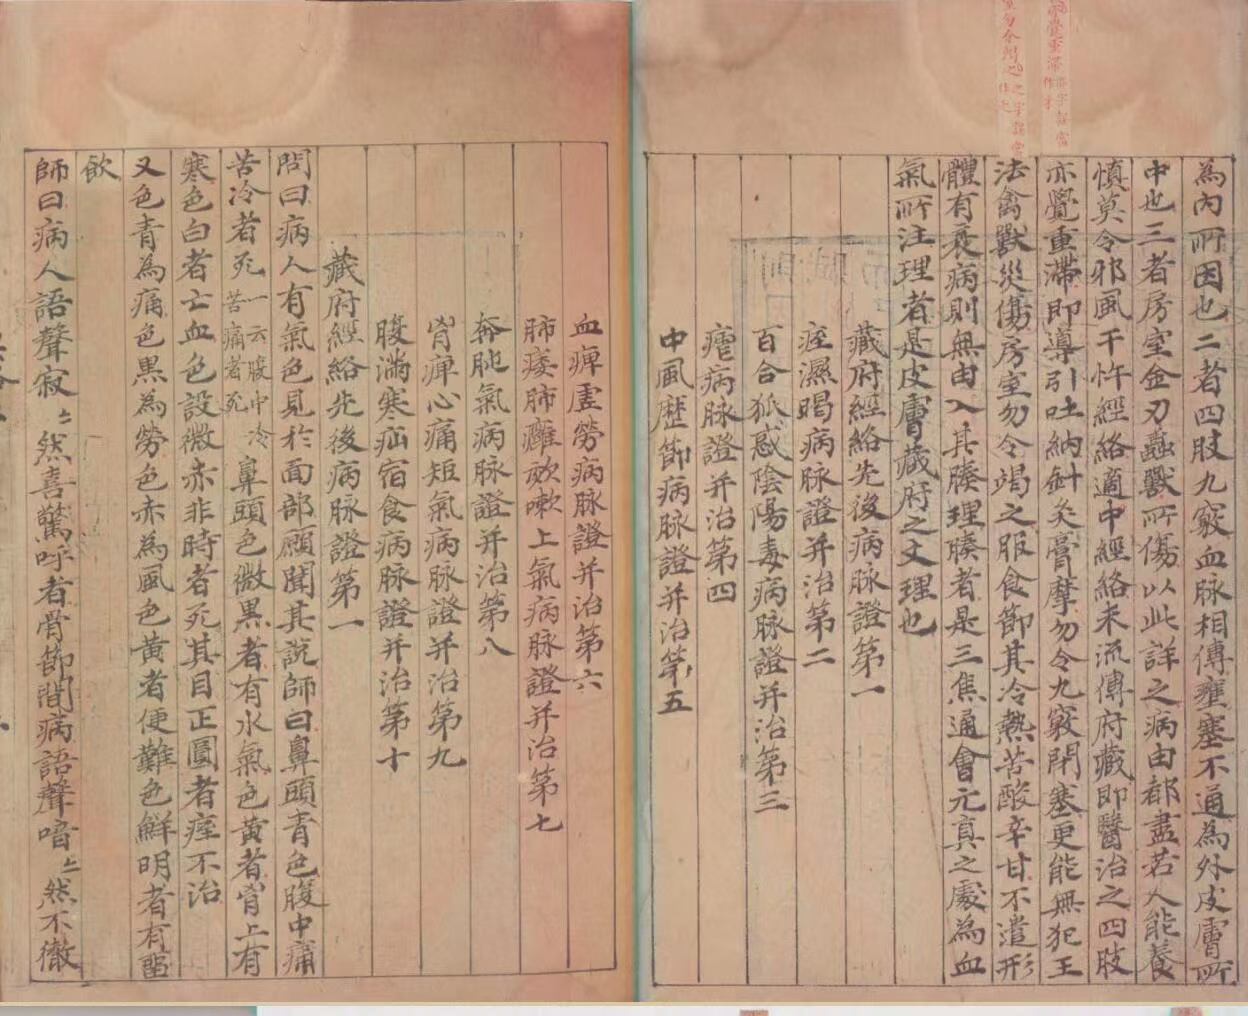 為內所因也二者四肢九竅血脉相傳壅塞不通為外皮膚所
中也三者房室金刃蟲獸所傷以此詳之病由都盡若人能養
慎莫令邪風干忤經絡適中經絡未流傳府藏即醫治之四肢
亦覺重滯即導引吐納針灸膏摩勿令九竅閉塞更能無犯王
法禽獸災傷房室勿令竭之服食節其冷熱苦酸辛甘不遣形
體有衰病則無由入其腠理腠者是三焦通會元真之處為血
氣所注理者是皮膚藏府之文理也
藏府經絡先後病脉證第一
痓濕暍病脉證并治第二
百合狐惑陰陽毒病脉證并治第三
瘧病脉證并治第四
中風歷節病脉證并治第五
血痺虛勞病脉證并治第六
肺痿肺癰欬嗽上氣病脉證并治第七
奔肫氣病脉證并治第八
胷痺心痛短氣病脉證并治第九
腹滿寒疝宿食病脉證并治第十
藏府經絡先後病脉證第一
問曰病人有氣色見於面部願聞其說師曰鼻頭青色腹中痛
苦冷者死一云腹中冷苦痛者死鼻頭色微黑者有水氣色黃者胷上有
寒色白者亡血色設微赤非時者死其目正圓者痓不治
又色青為痛色黑為勞色赤為風色黃者便難色鮮明者有留
飲
師曰病人語聲寂〻然喜驚呼者骨節間病語聲喑〻然不徹